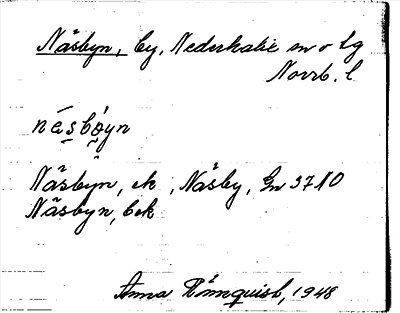 Näsbyn, by, Nederkalix sn o tg
Norrb. l
nésbóyn
Näsbyn, ek, Näsby, Gn 3710
Näsbyn, bek
Anna Rönnquist, 1948